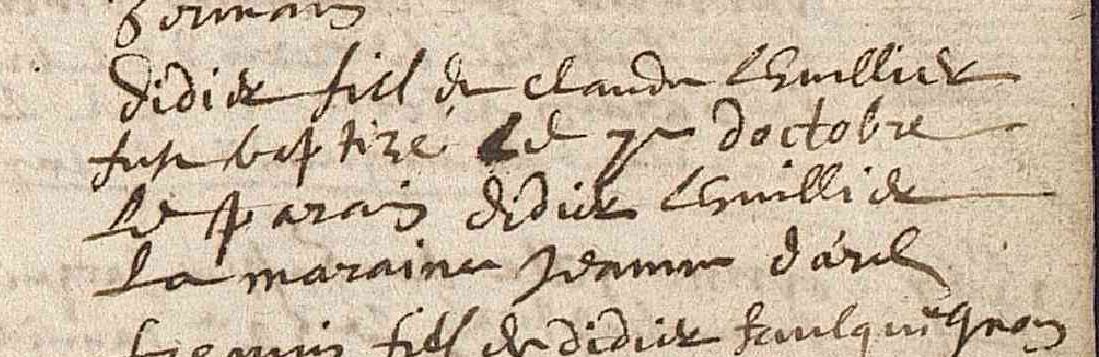 didier fill de claude lhuillier
fut baptizé le 7e doctobre
Le parain didier lhuillier
La maraine Jeanne darel
fill de didier